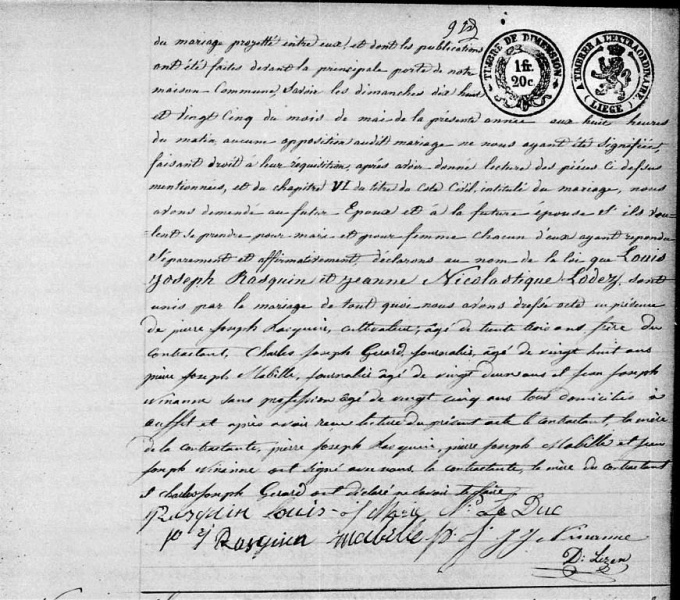 du mariage projetté entre eux, et dont les publications
ont été faites devant la principale porte de notre
maison Commune, Savoir les dimanches dix huit
et vingt Cinq du mois de mai de la présente année aux huit heures
du matin, aucune opposition audit mariage ne nous ayant été signifiée,
faisant droit à leur réquisition, après avoir donné lecture des pièces Ci dessus
mentionnées, et du chapitre VI du titre du Code Civil intitulé du mariage, nous
avons demandé au futur Epoux et à la future épouse S'ils veu-
lent se prendre pour mari et pour femme chacun d'eux ayant repondu
Séparement et affirmativement, déclarons au nom de la loi que Louis
Joseph Rasquin et Jeanne Nicolastique Lodez, sont
unis par le mariage de tout quoi nous avons dressé acte en présence
de pierre Joseph Rasquin, cultivateur, âgé de trente trois ans, frère du
contractant, Charles Joseph Gerard, journalier, âgé de vingt huit ans
pierre Joseph Mabille, journalier âgé de vingt deux ans et Jean Joseph
Ninanne sans profession âgé de vingt cinq ans tous domiciliés à
auffet et après avoir reçu lecture du présent acte le contractant, la mère
de la contractante, pierre Joseph Rasquin, pierre Joseph Mabille et Jean
Joseph Ninanne ont signé avec nous, la contractante, la mère du contractant
et Charles Joseph Gerard ont déclaré ne savoir le faire
Rasquin Louis j Marg N. Le Duc
p j Rasquin mabille p. j. J J Ninanne
TIMBRE DE DIMENSION
1 fr
20c
A TIMBRER A L'EXTRAORDINAIRE
(LIEGE)